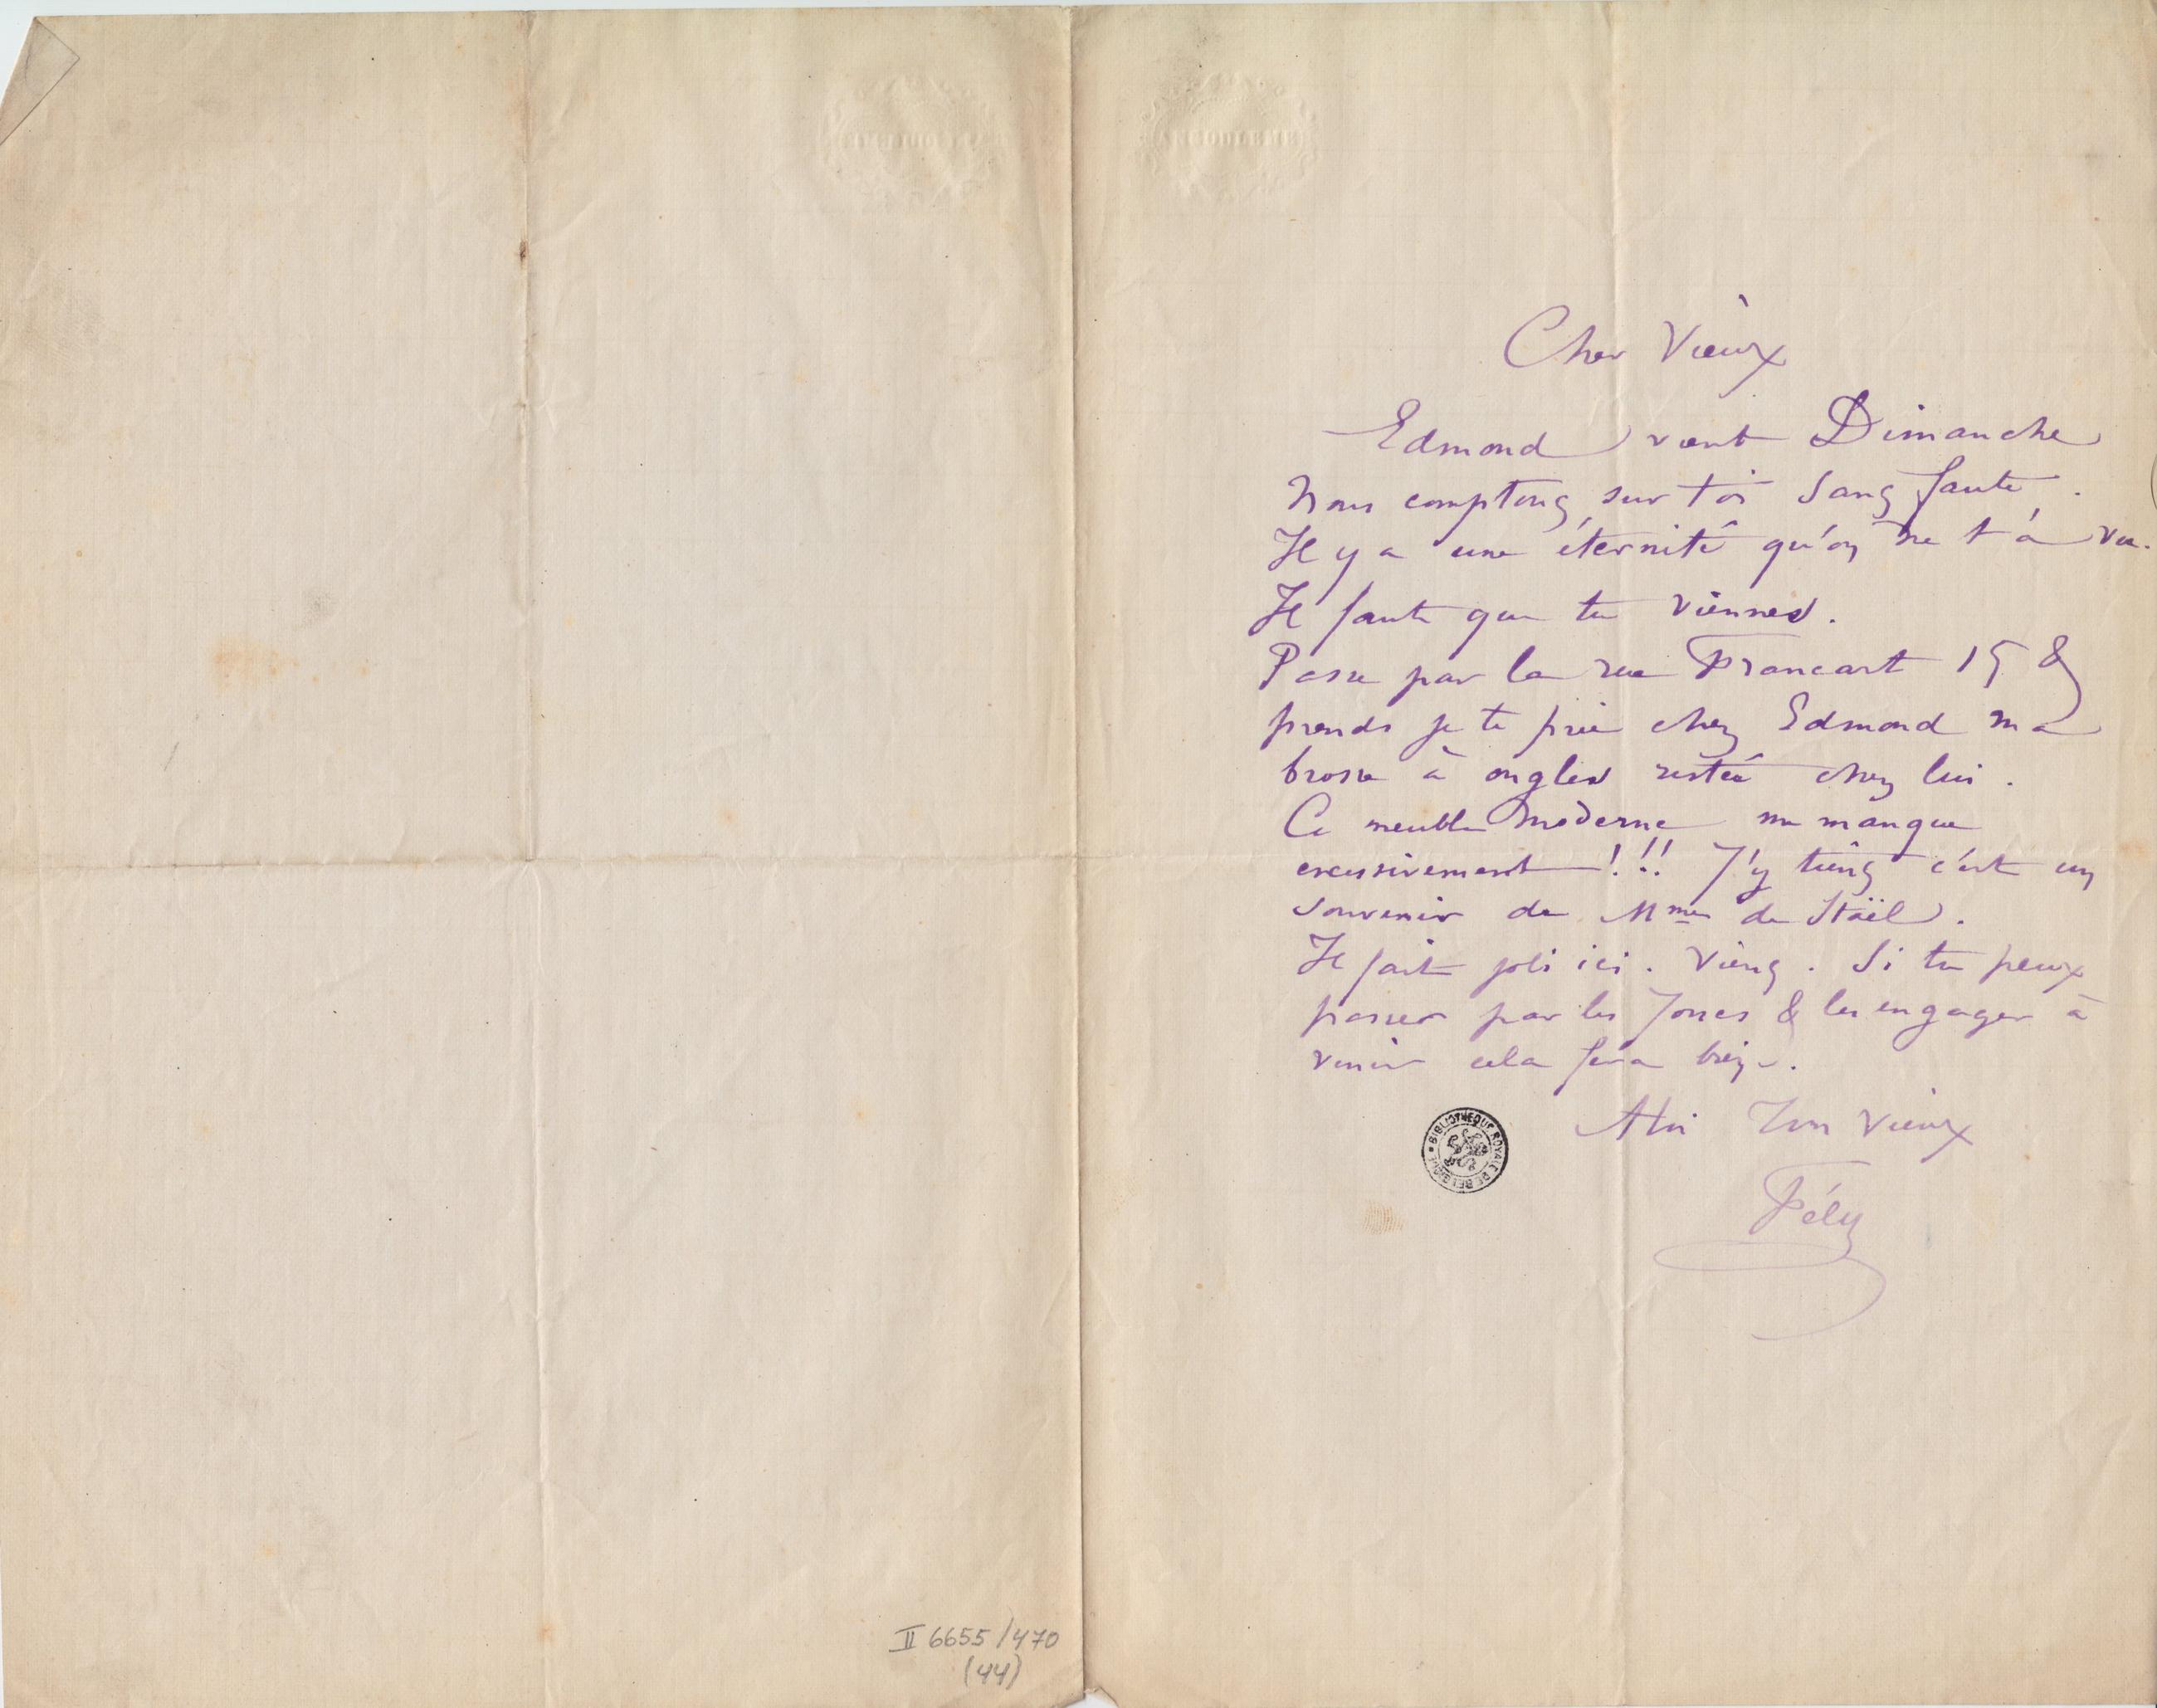 ANGOULEME
Cher Vieux
Edmond vient Dimanche
Nous comptons sur toi sans faute.
Il y a une éternité qu'on ne t'a vu.
Il faut que tu viennes.
Passe par la rue Francart 15 &
prends je te prie chez Edmond ma
brosse à ongles restée chez lui.
Ce meuble moderne me manque
excessivement!!! J'y tiens c'est un
souvenir de Mme de Staël.
Il fait joli ici. Viens. Si tu peux
passer par les Jones & les engager à
venir cela fera bien.
A toi Ton vieux
Fély
BIBLIOTHEQUE ROYALE DE BELGIQUE
II 6655/470
(44)